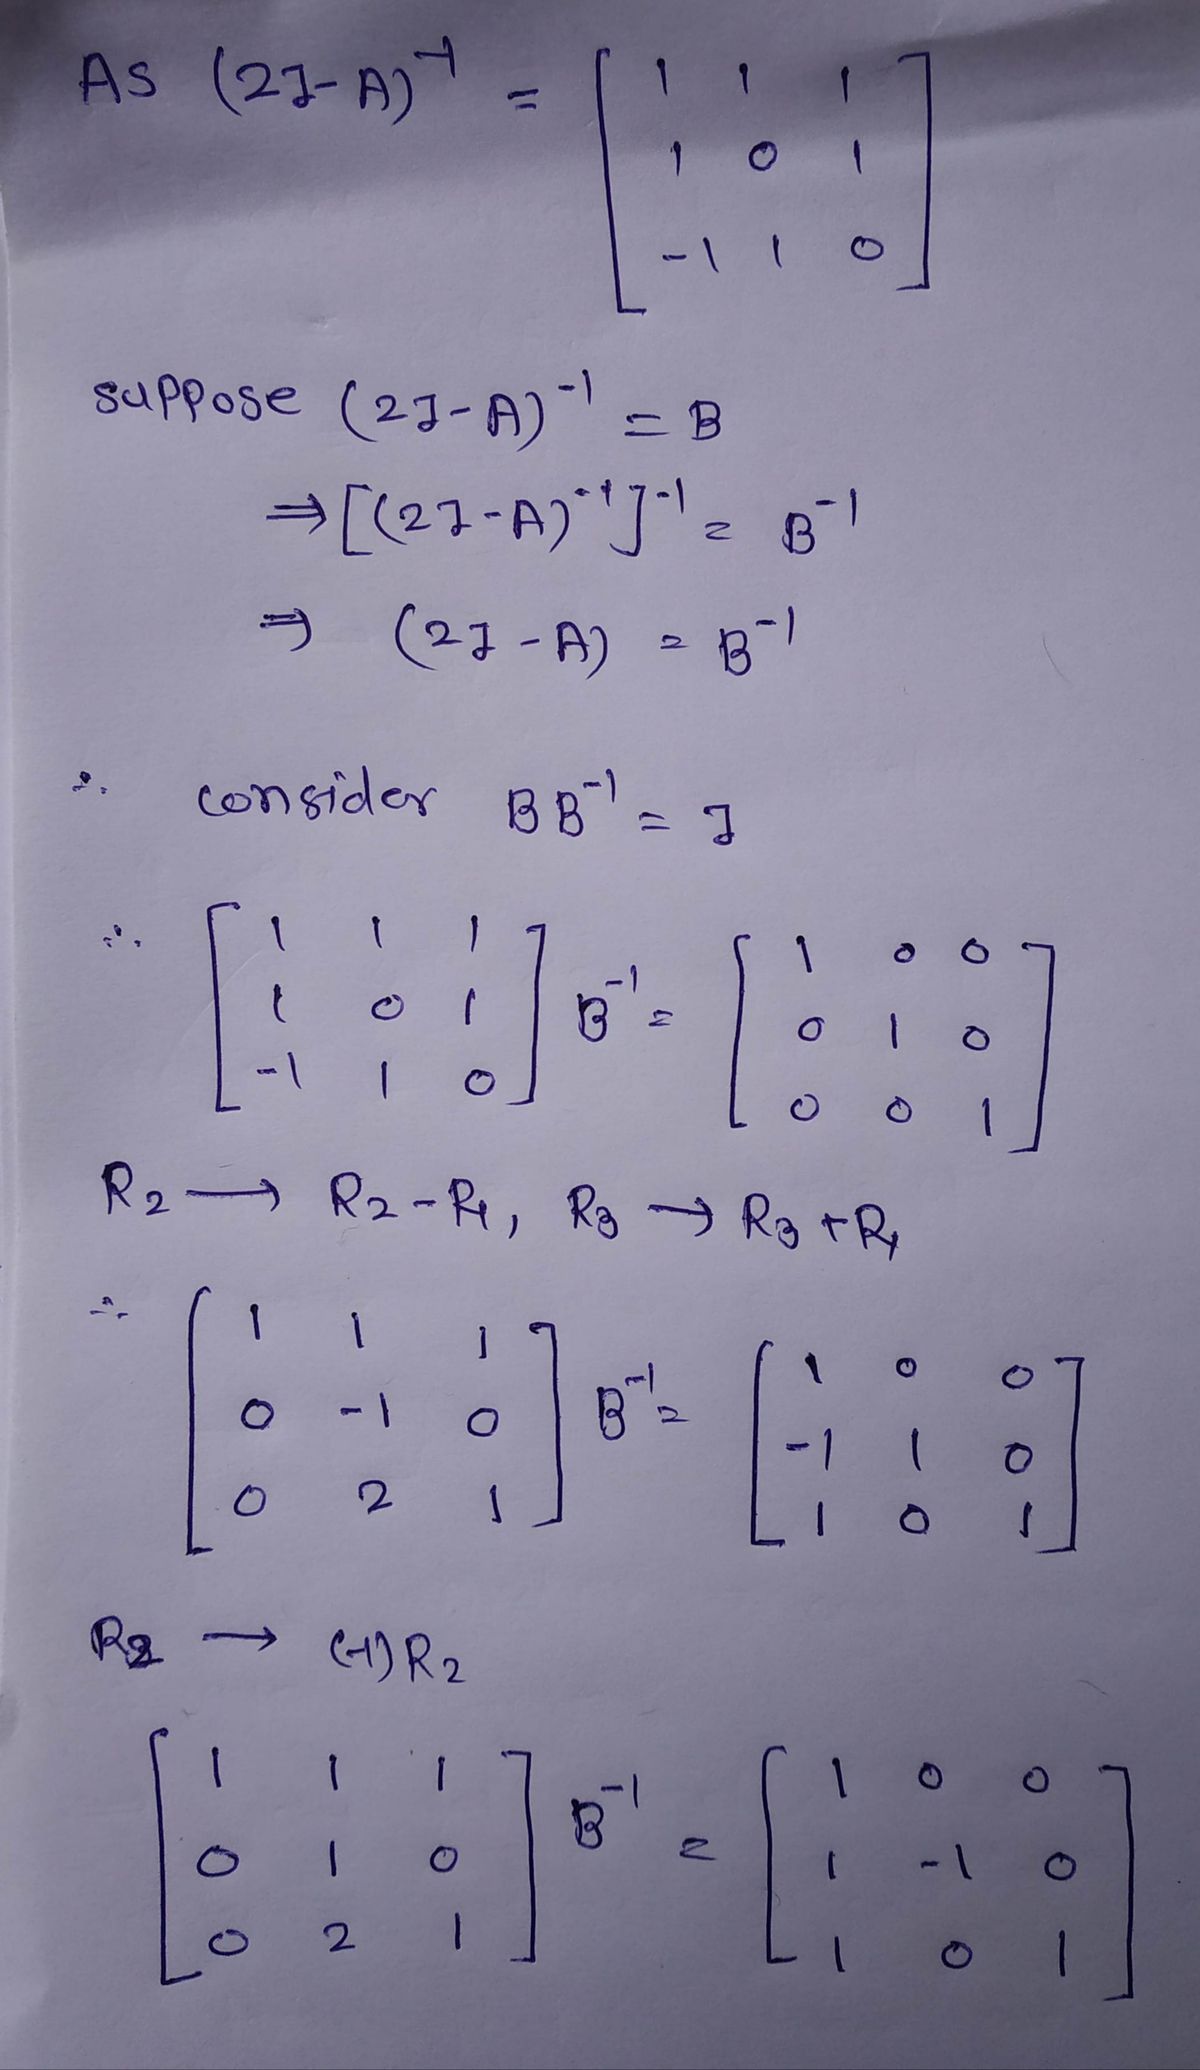 As (2I-A)⁻¹ = [ 1 1 1
1 0 1
-1 1 0 ]
suppose (2I-A)⁻¹ = B
⇒ [(2I-A)⁻¹]⁻¹ = B⁻¹
⇒ (2I-A) = B⁻¹
∴ consider BB⁻¹ = I
∴ [ 1 1 1 ] B⁻¹ = [ 1 0 0 ]
[ 1 0 1 ] [ 0 1 0 ]
[ -1 1 0 ] [ 0 0 1 ]
R₂ → R₂ - R₁, R₃ → R₃ + R₁
∴ [ 1 1 1 ] B⁻¹ = [ 1 0 0 ]
[ 0 -1 0 ] [ -1 1 0 ]
[ 0 2 1 ] [ 1 0 1 ]
R₂ → (-1) R₂
[ 1 1 1 ] B⁻¹ = [ 1 0 0 ]
[ 0 1 0 ] [ 1 -1 0 ]
[ 0 2 1 ] [ 1 0 1 ]